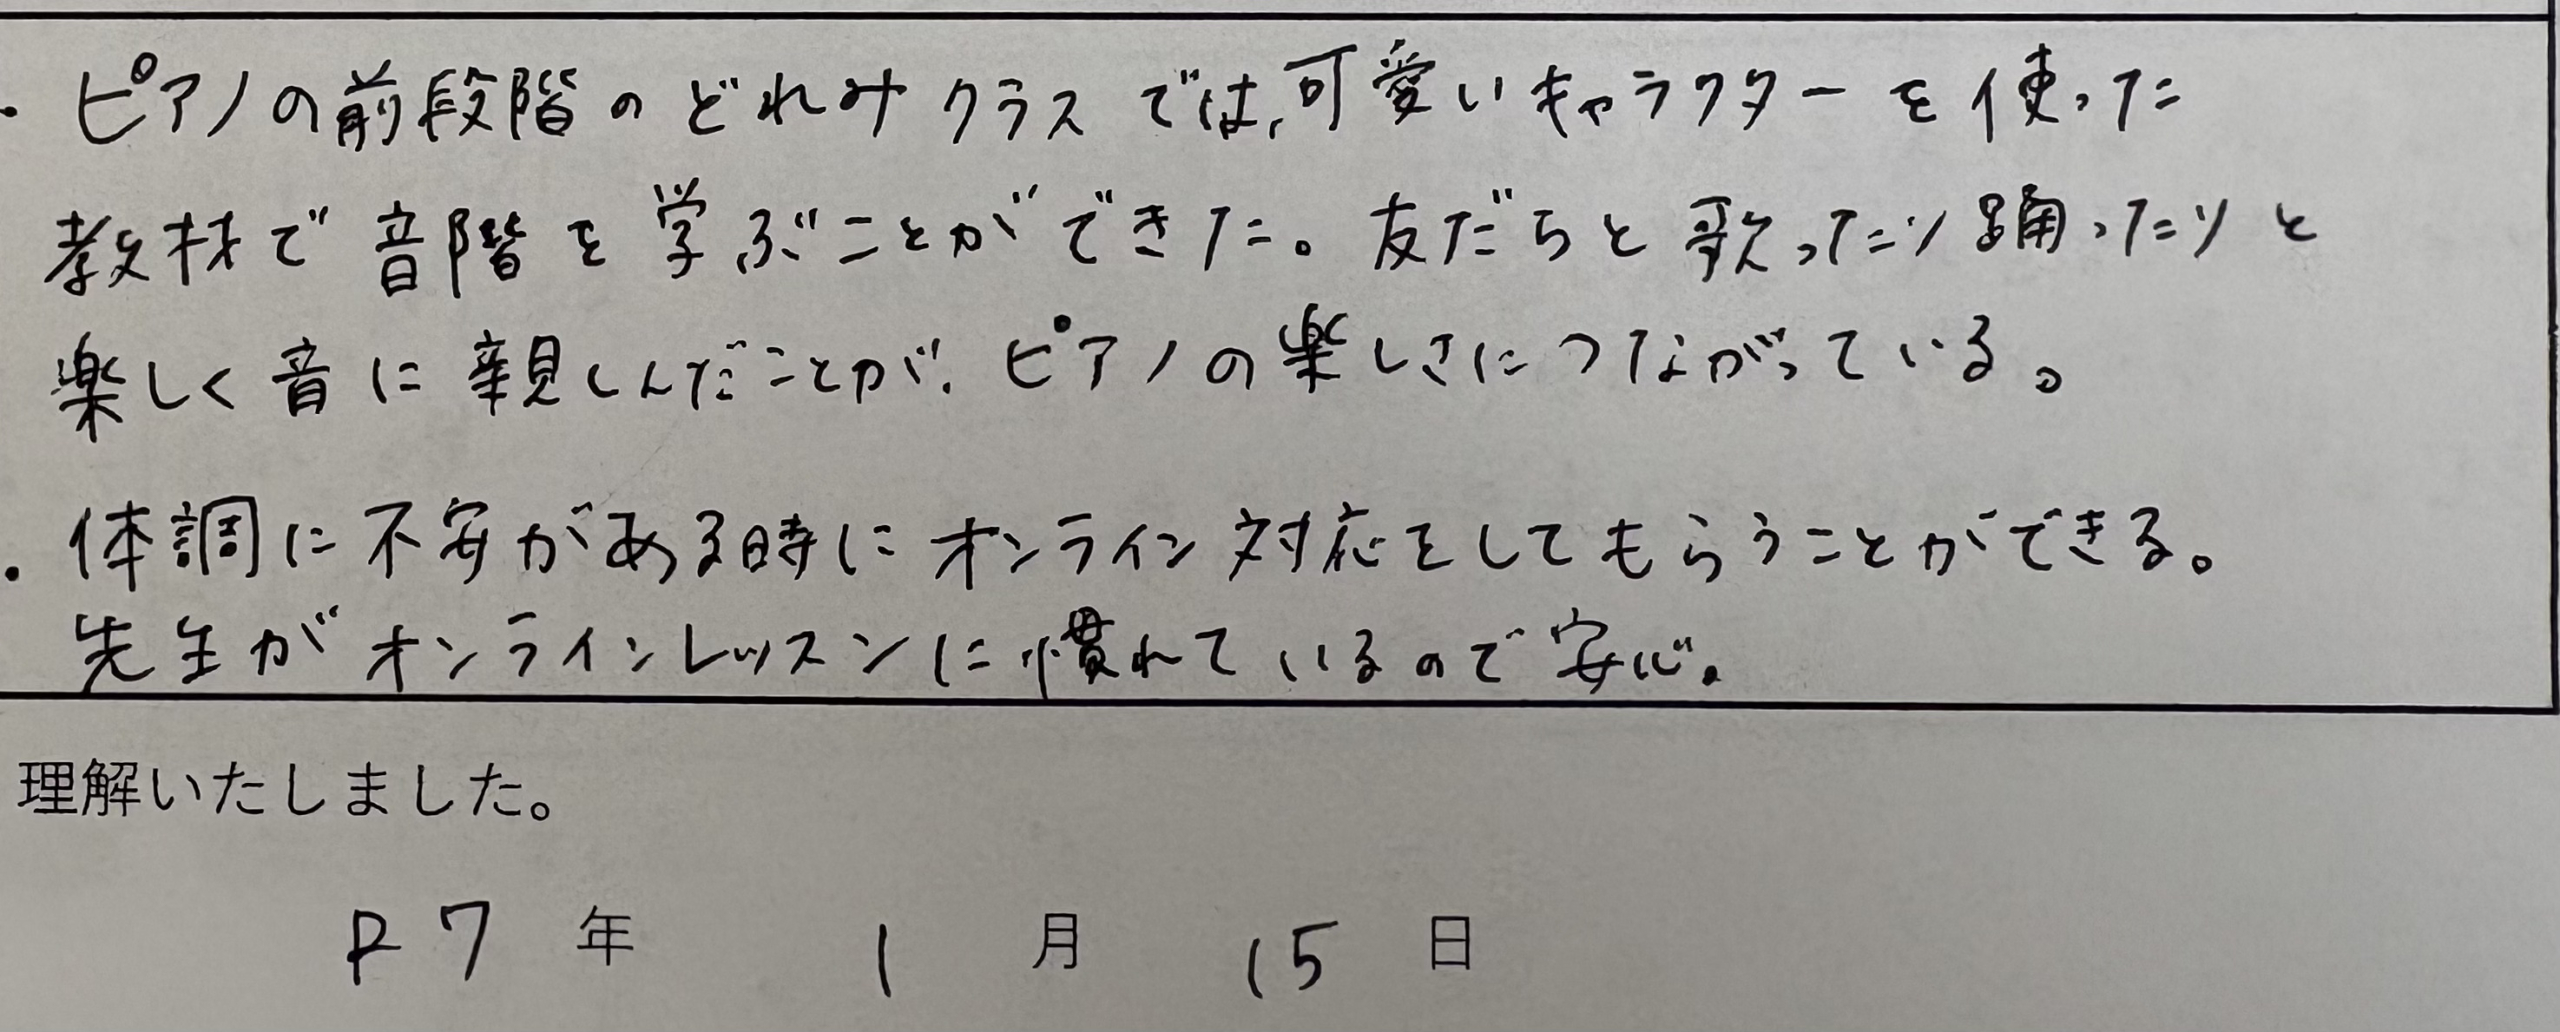 ・ピアノの前段階のどれみクラスでは、可愛いキャラクターを使った
教材で音階を学ぶことができた。友だちと歌ったり踊ったりと
楽しく音に親しんだことが、ピアノの楽しさにつながっている。
・体調に不安がある時にオンライン対応をしてもらうことができる。
先生がオンラインレッスンに慣れているので安心。
理解いたしました。
R7 年 1 月 15 日